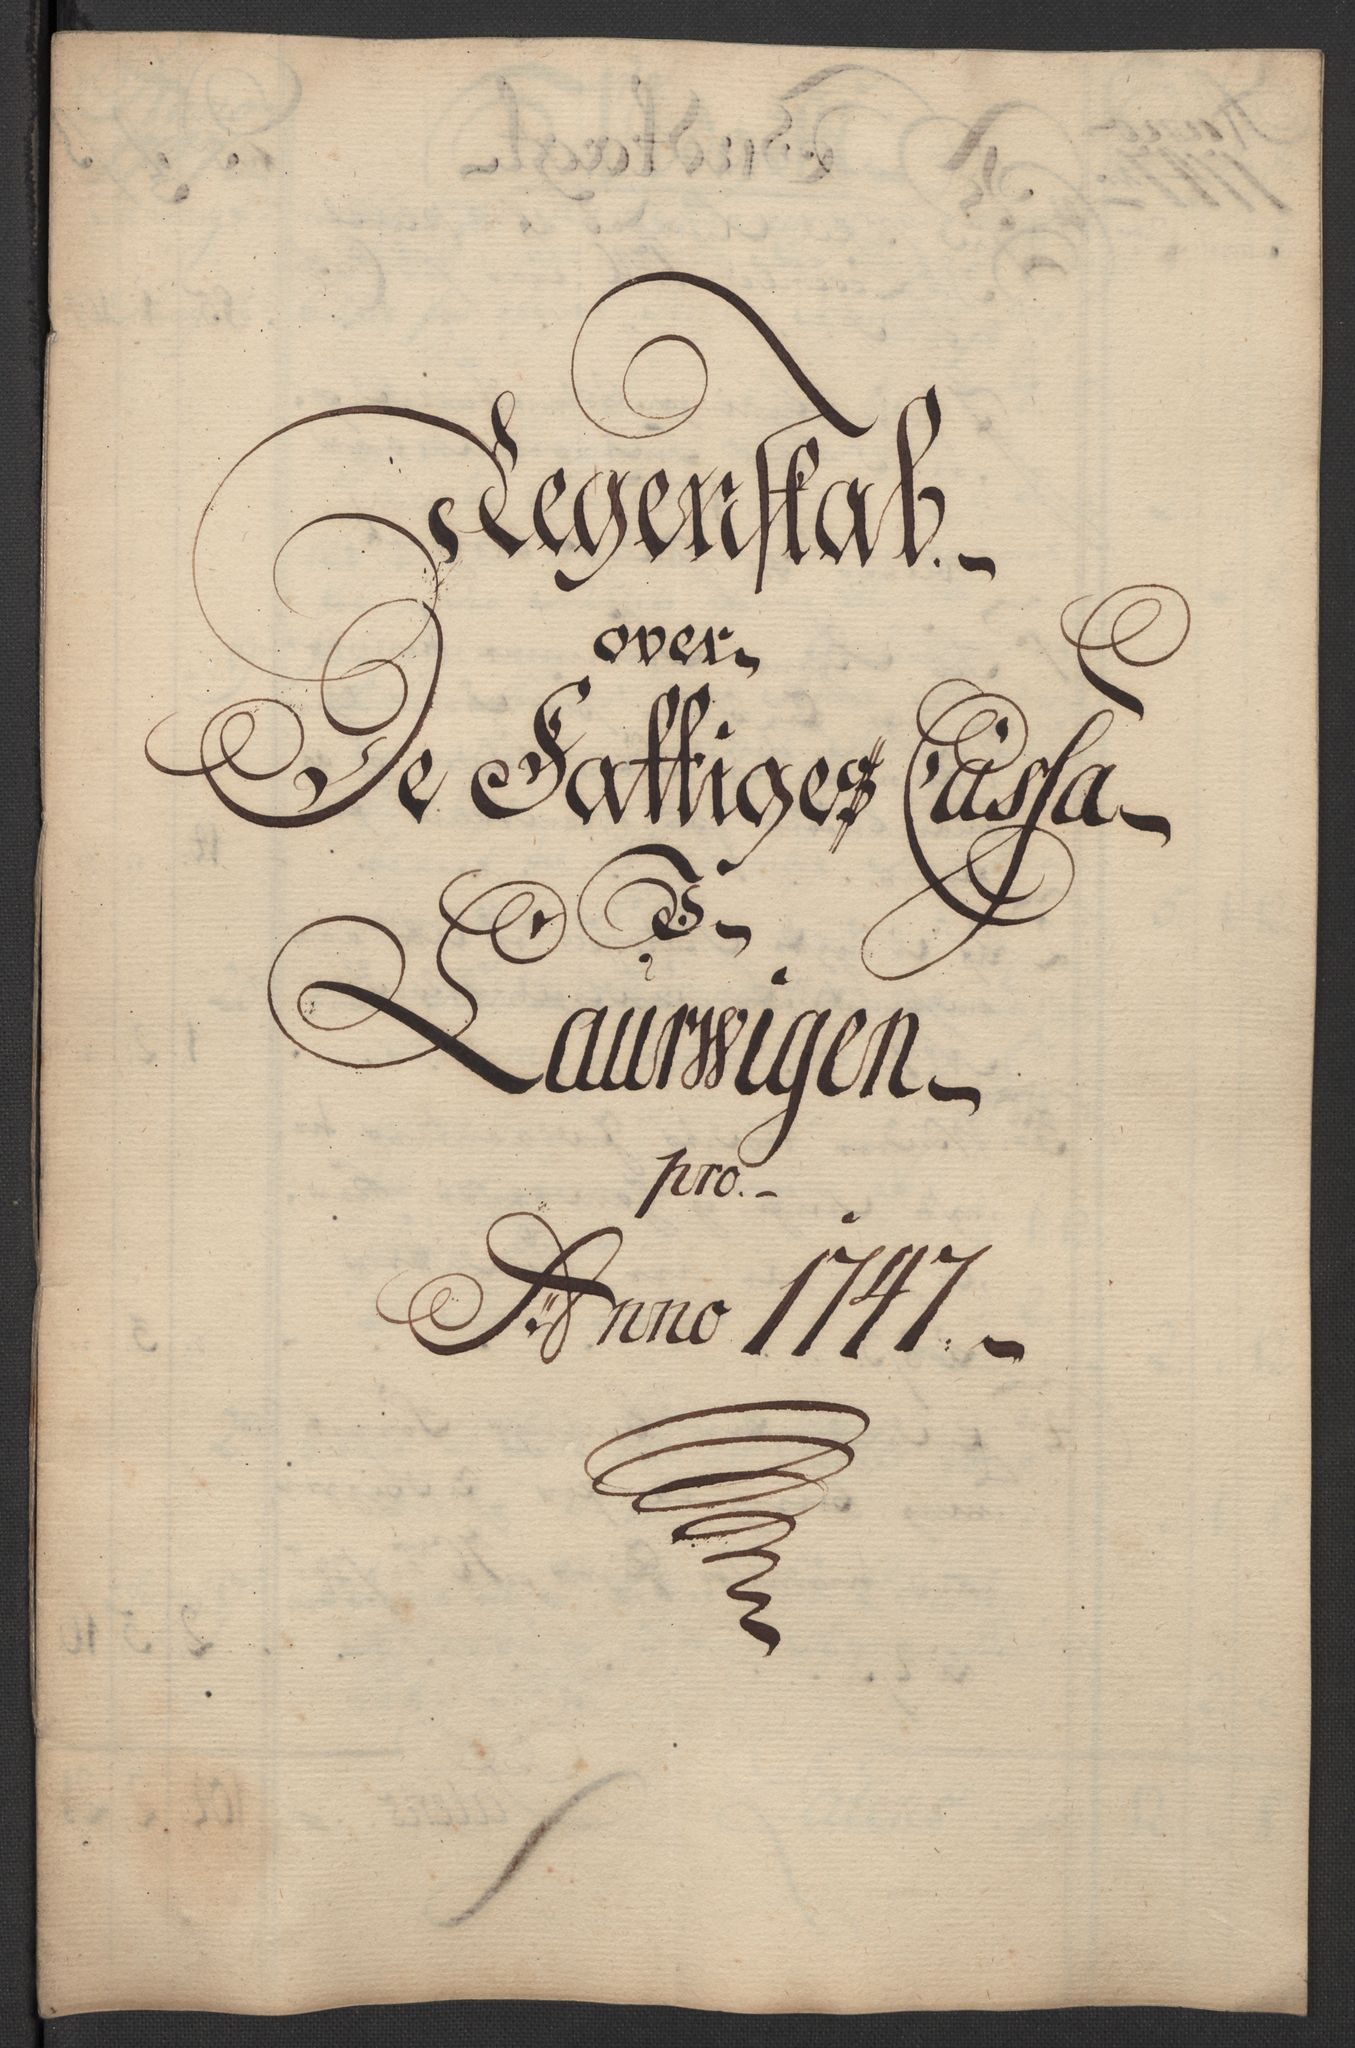 Regenskab.
over
De Fattiges Cassa
I
Laurwigen
pro.
Anno 1747.